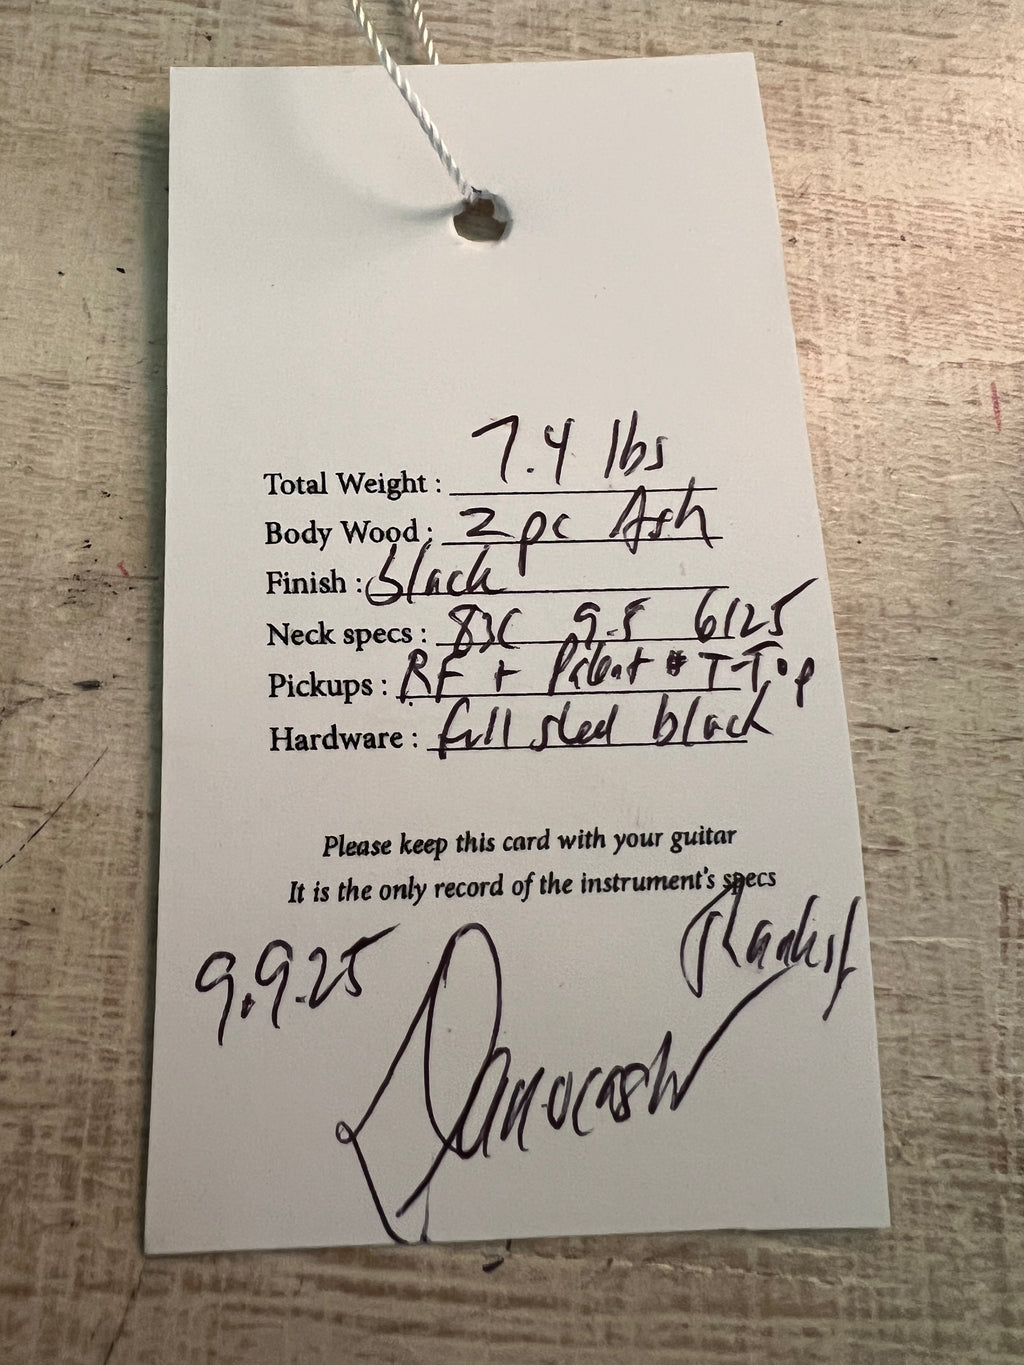 Total Weight : 7.4 lbs
Body Wood : 2 pc Ash
Finish : black
Neck specs : 83C 9.5 6125
Pickups : RF + Patent # T-Top
Hardware : full steel black
Please keep this card with your guitar
It is the only record of the instrument's specs
9.9.25
Danocaster